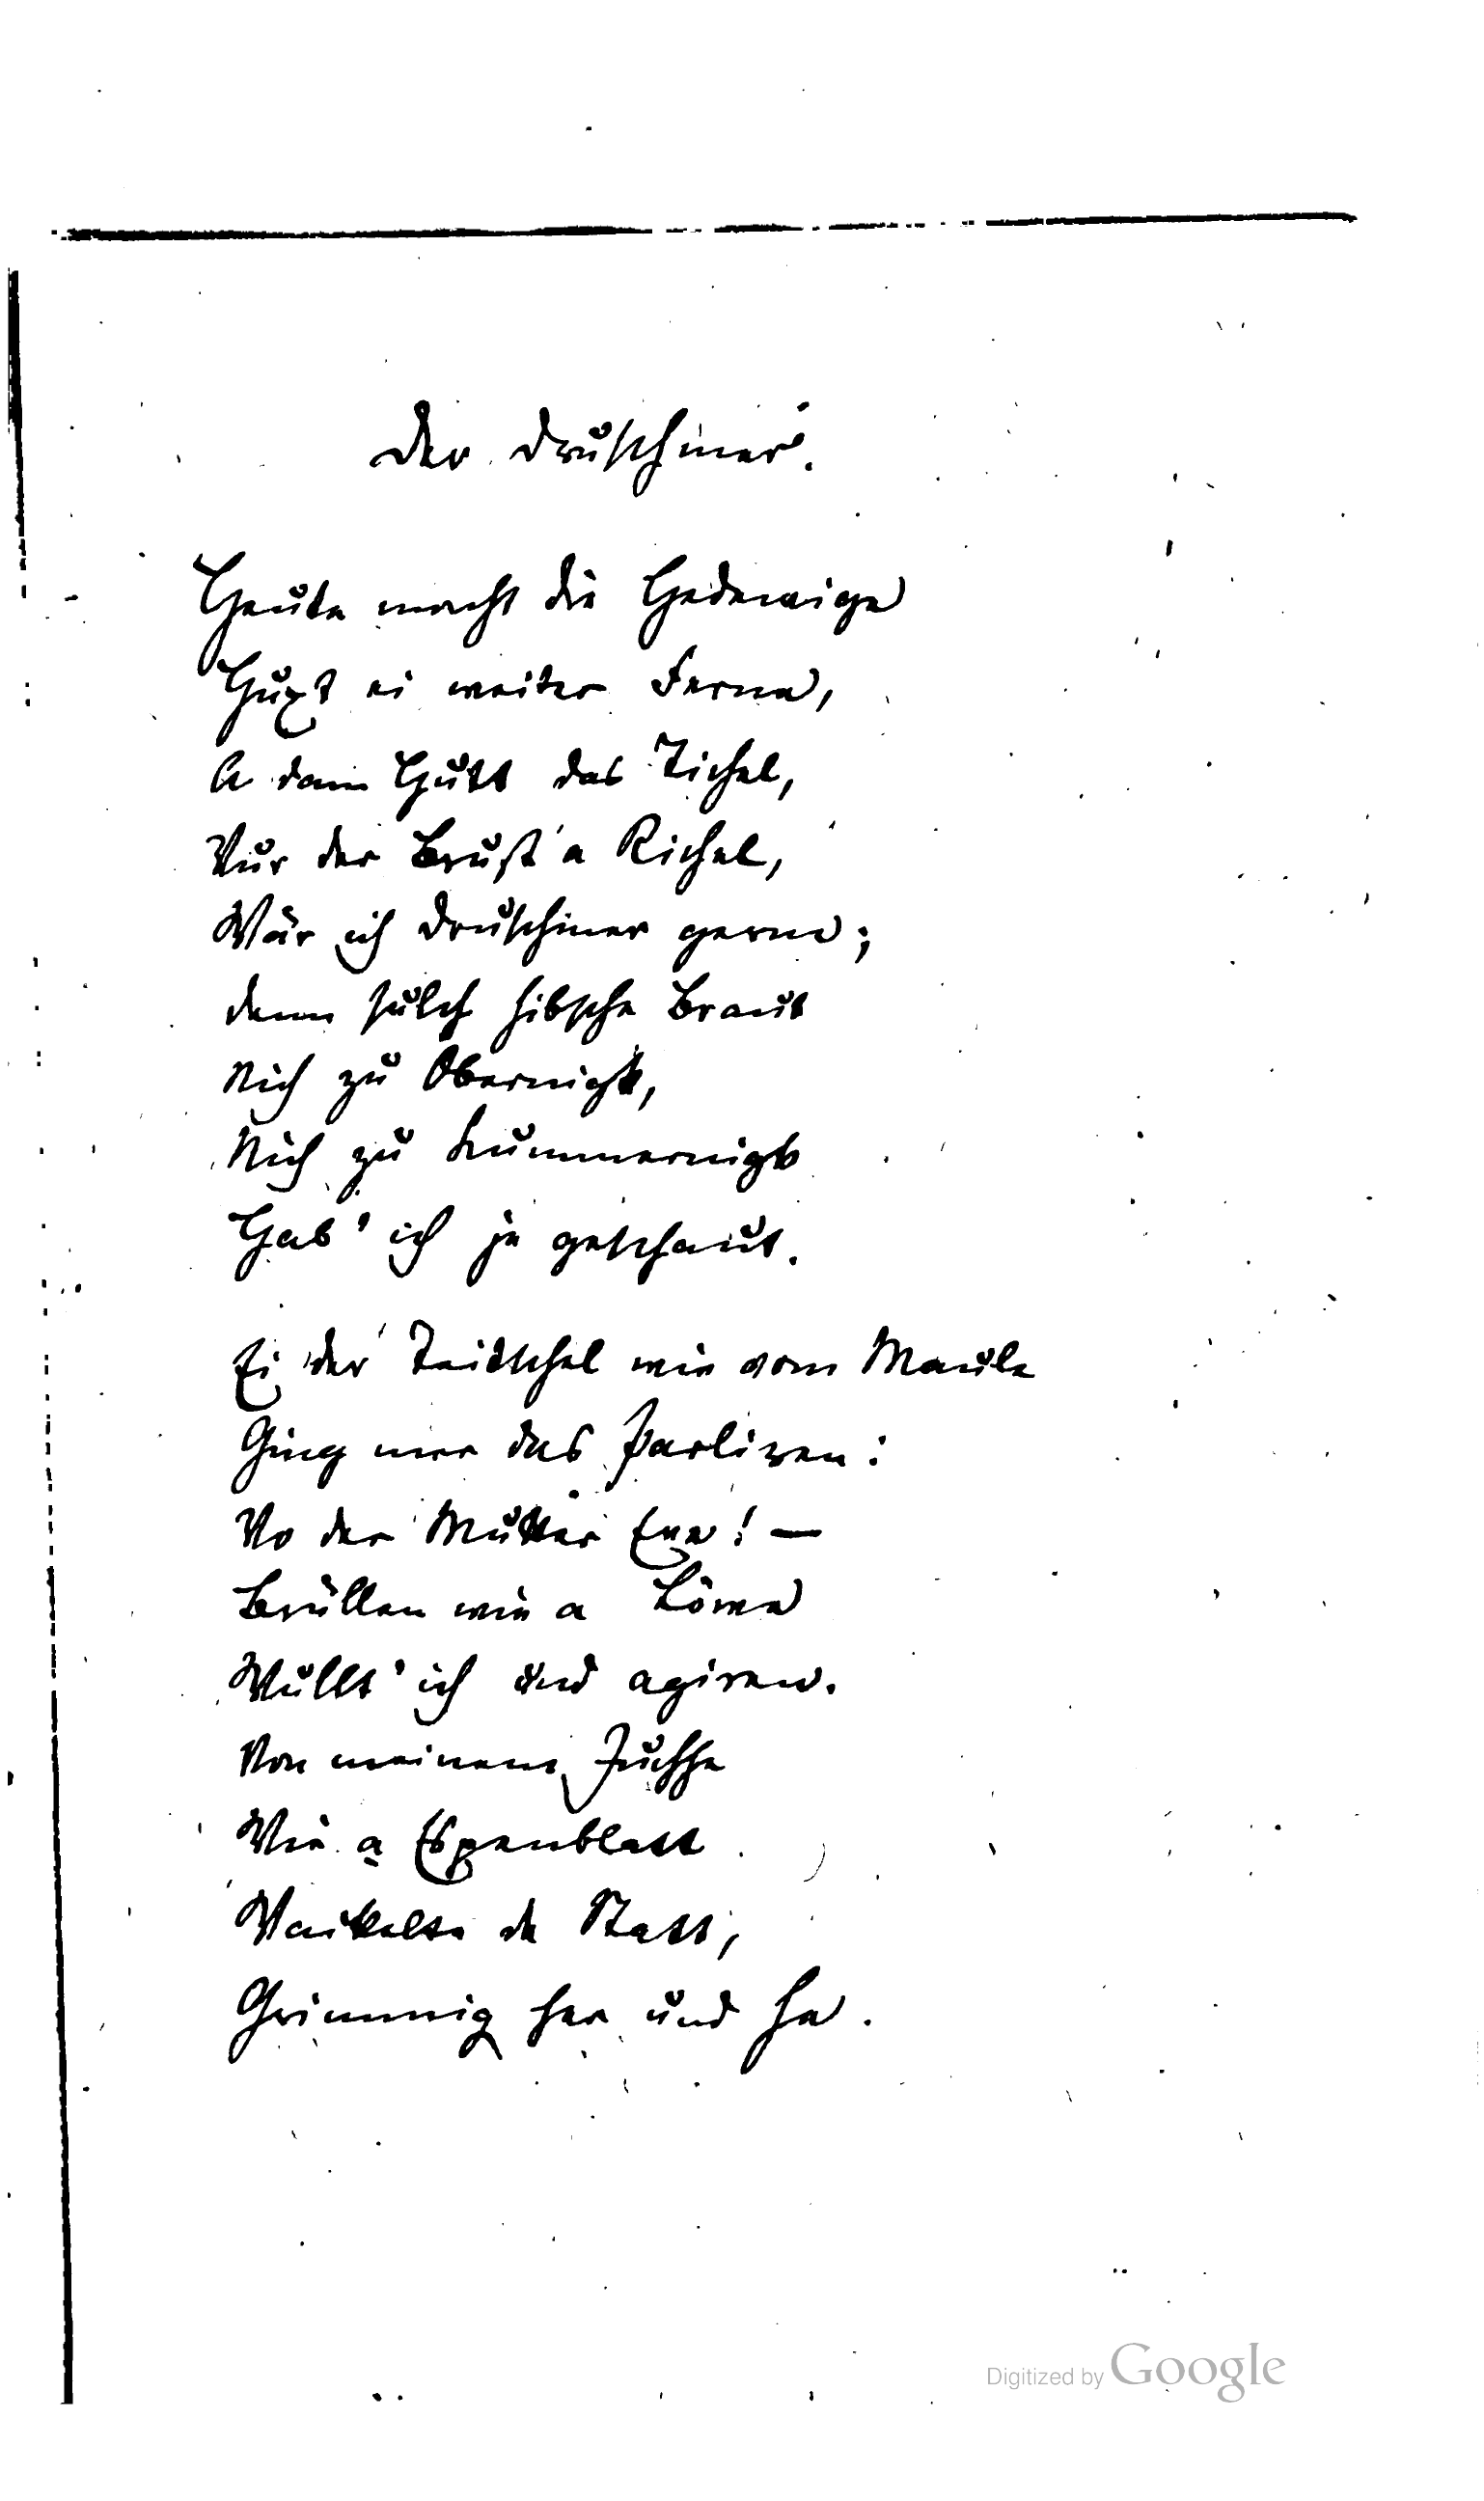 Der Druschmer.
Heute macht die Hedewige
Huxt ei weiter Ferne,
A dam Hutt das Zichel,
Vur der Brust a Richel,
Wär ich Druschmer gerne;
Denn sulch hibsche Braut
Nich zu Obernigk,
Nich zu Kummernigk
Hab' ich je geschaut.
Ei der Teitschel wie vom Maule
Ging mer das Parliren:
Vo der Mutter Eve! —
Brüllen wie a Löwe
Wullt' ich und agiren.
Von meinem Juchhe
Wie a Espenblatt
Wackelte de Statt,
Grimmig her und he.
Digitized by Google